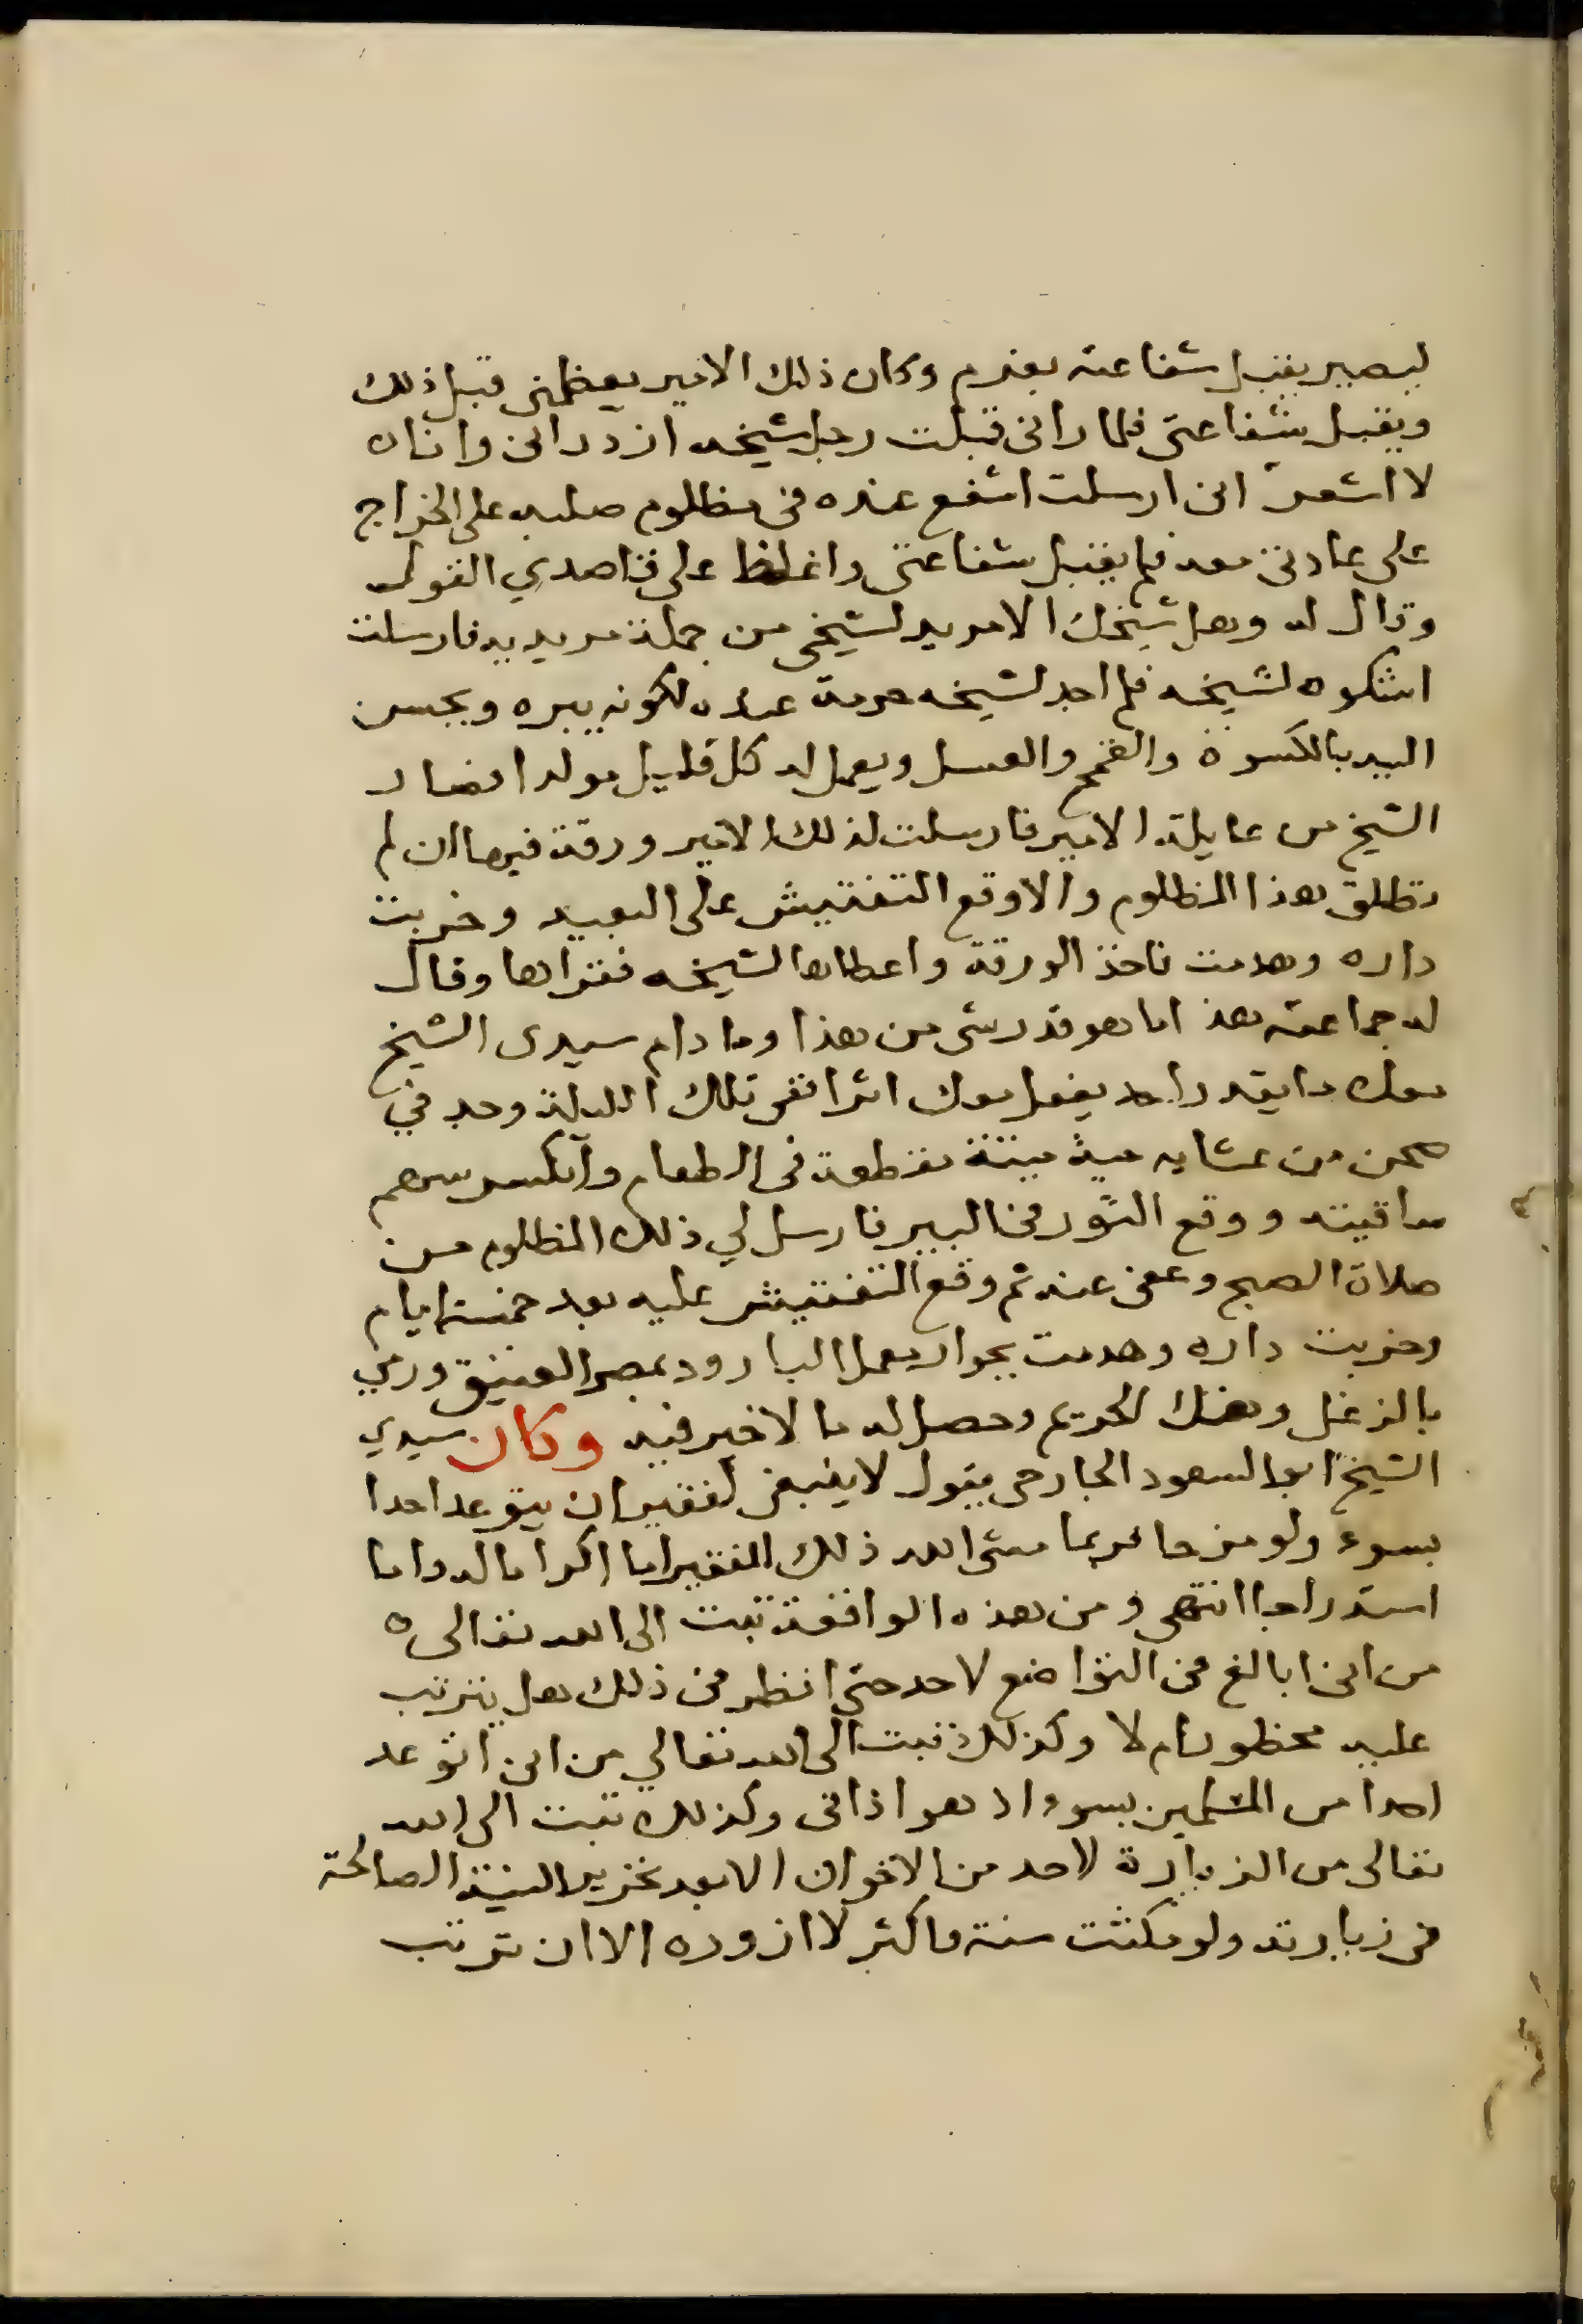 ليصير يقبل شفاعته بعزم وكان ذلك الامير يعظمنى قبل ذلك
ويقبل شفاعتى فلما رانى قبلت رجل شيخه ازدرانى وانا
لا اشعر انى ارسلت اشفع عنده فى مظلوم صلبه على الخراج
على عادتى معه فلم يقبل شفاعتى واغلظ على قاصدي القول
وقال له وهل شيخك الا مريد لشيخى من جملة مريديه فارسلت
اشكوه لشيخه فلم اجد لشيخه حرمة عنده لكونه يبره ويحسن
اليه بالكسوة والقمح والعسل ويعمل له كل قليل مولدا فصار
الشيخ من عايلة الامير فارسلت لذلك الامير ورقة فيها ان لم
تطلق هذا المظلوم والا وقع التفتيش على البعيد وخربت
داره وهدمت فاخذ الورقة واعطاها لشيخه فقراها وقال
له جماعته هذا ما هو قدر شى من هذا وما دام سيدى الشيخ
معك ما يقدر احد يفعل معك اثرا ففى تلك الليلة وجد في
صحن من عشايه حية ميتة مقطعة فى الطعام وانكسر سهم
ساقيته ووقع الثور فى البير فارسل لي ذلك المظلوم من
صلاة الصبح وعفى عنه ثم وقع التفتيش عليه بعد خمسة ايام
وخربت داره وهدمت بجوار معمل البارود بمصر العتيق ورمي
بالزغل وهتك الحريم وحصل له ما لا خير فيه وكان سيدي
الشيخ ابو السعود الجارحى يقول لا ينبغى لفقير ان يتوعد احدا
بسوء ولو مزحا فربما مشى الله ذلك الفقير اما اكراما له واما
استدراجا انتهى ومن هذه الواقعة تبت الى الله تعالى
من انى ابالغ فى التواضع لاحد حتى انظر فى ذلك هل يترتب
عليه محظور ام لا وكذلك تبت الى الله تعالي من انى اتوعد
احدا من المسلمين بسوء اذ هو اذانى وكذلك تبت الى الله
تعالى من الزيارة لاحد من الاخوان الا بعد تحرير النية الصالحة
فى زيارته ولو مكثت سنة فاكثر لا ازوره الا ان ترتب